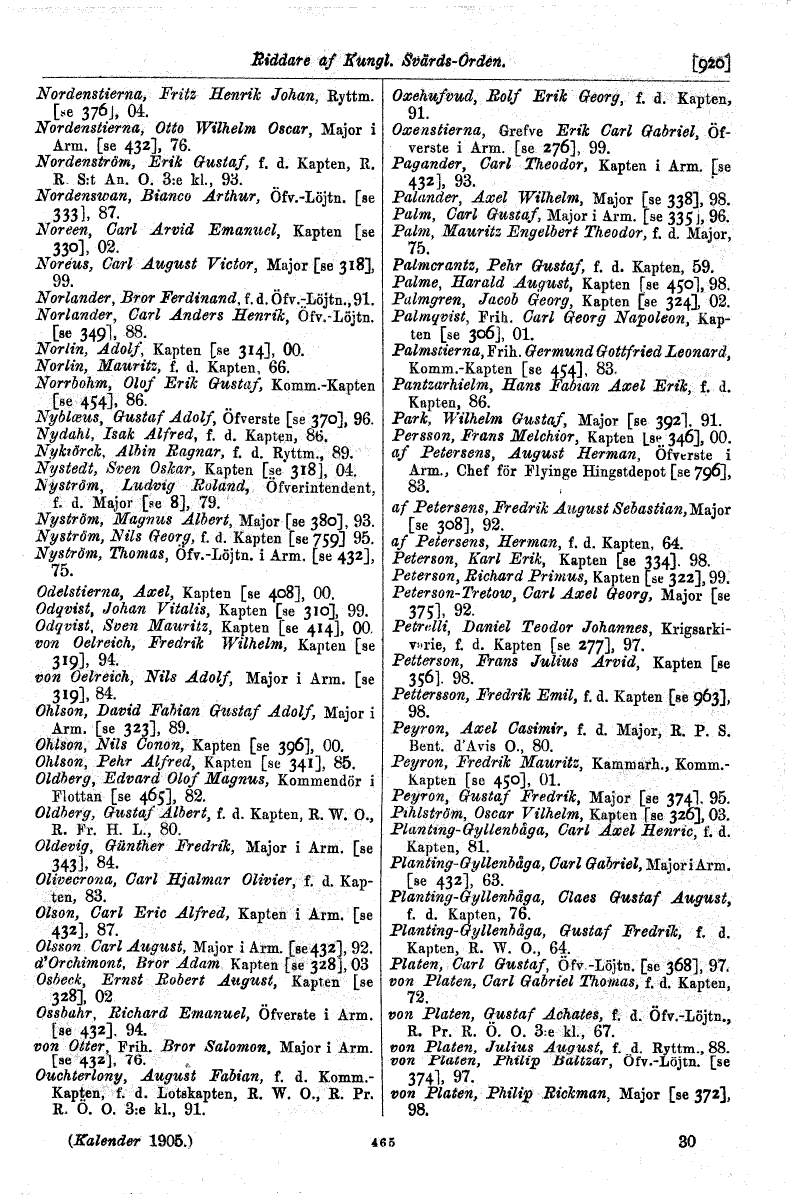 Riddare af Kungl. Svärds-Orden.
[920]
Nordenstierna, Fritz Henrik Johan, Ryttm.
[se 376], 04.
Nordenstierna, Otto Wilhelm Oscar, Major i
Arm. [se 432], 76.
Nordenström, Erik Gustaf, f. d. Kapten, R.
R. S:t An. O. 3:e kl., 93.
Nordenswan, Bianco Arthur, Öfv.-Löjtn. [se
333], 87.
Noreen, Carl Arvid Emanuel, Kapten [se
330], 02.
Noréus, Carl August Victor, Major [se 318],
99.
Norlander, Bror Ferdinand, f. d. Öfv.-Löjtn., 91.
Norlander, Carl Anders Henrik, Öfv.-Löjtn.
[se 349], 88.
Norlin, Adolf, Kapten [se 314], 00.
Norlin, Mauritz, f. d. Kapten, 66.
Norrbohm, Olof Erik Gustaf, Komm.-Kapten
[se 454], 86.
Nyblæus, Gustaf Adolf, Öfverste [se 370], 96.
Nydahl, Isak Alfred, f. d. Kapten, 86.
Nykiörck, Albin Ragnar, f. d. Ryttm., 89.
Nystedt, Sven Oskar, Kapten [se 318], 04.
Nyström, Ludvig Roland, Öfverintendent,
f. d. Major [se 8], 79.
Nyström, Magnus Albert, Major [se 380], 93.
Nyström, Nils Georg, f. d. Kapten [se 759] 95.
Nyström, Thomas, Öfv.-Löjtn. i Arm. [se 432],
75.
Odelstierna, Axel, Kapten [se 408], 00.
Odqvist, Johan Vitalis, Kapten [se 310], 99.
Odqvist, Sven Mauritz, Kapten [se 414], 00.
von Oelreich, Fredrik Wilhelm, Kapten [se
319], 94.
von Oelreich, Nils Adolf, Major i Arm. [se
319], 84.
Ohlson, David Fabian Gustaf Adolf, Major i
Arm. [se 323], 89.
Ohlson, Nils Conon, Kapten [se 396], 00.
Ohlson, Pehr Alfred, Kapten [se 341], 85.
Oldberg, Edvard Olof Magnus, Kommendör i
Flottan [se 465], 82.
Oldberg, Gustaf Albert, f. d. Kapten, R. W. O.,
R. Fr. H. L., 80.
Oldevig, Günther Fredrik, Major i Arm. [se
343], 84.
Olivecrona, Carl Hjalmar Olivier, f. d. Kap-
ten, 83.
Olson, Carl Eric Alfred, Kapten i Arm. [se
432], 87.
Olsson Carl August, Major i Arm. [se 432], 92.
d'Orchimont, Bror Adam Kapten [se 328], 03
Osbeck, Ernst Robert August, Kapten [se
328], 02
Ossbahr, Richard Emanuel, Öfverste i Arm.
[se 432]. 94.
von Otter, Frih. Bror Salomon, Major i Arm.
[se 432], 76.
Ouchterlony, August Fabian, f. d. Komm.-
Kapten, f. d. Lotskapten, R. W. O., R. Pr.
R. Ö. O. 3:e kl., 91.
Oxehufvud, Rolf Erik Georg, f. d. Kapten,
91.
Oxenstierna, Grefve Erik Carl Gabriel, Öf-
verste i Arm. [se 276], 99.
Pagander, Carl Theodor, Kapten i Arm. [se
432], 93.
Palander, Axel Wilhelm, Major [se 338], 98.
Palm, Carl Gustaf, Major i Arm. [se 335], 96.
Palm, Mauritz Engelbert Theodor, f. d. Major,
75.
Palmcrantz, Pehr Gustaf, f. d. Kapten, 59.
Palme, Harald August, Kapten [se 450], 98.
Palmgren, Jacob Georg, Kapten [se 324], 02.
Palmqvist, Frih. Carl Georg Napoleon, Kap-
ten [se 306], 01.
Palmstierna, Frih. Germund Gottfried Leonard,
Komm.-Kapten [se 454], 83.
Pantzarhielm, Hans Fabian Axel Erik, f. d.
Kapten, 86.
Park, Wilhelm Gustaf, Major [se 392]. 91.
Persson, Frans Melchior, Kapten [se 346], 00.
af Petersens, August Herman, Öfverste i
Arm., Chef för Flyinge Hingstdepot [se 796],
83.
af Petersens, Fredrik August Sebastian, Major
[se 308], 92.
af Petersens, Herman, f. d. Kapten, 64.
Peterson, Karl Erik, Kapten [se 334]. 98.
Peterson, Richard Primus, Kapten [se 322], 99.
Peterson-Tretow, Carl Axel Georg, Major [se
375], 92.
Petrelli, Daniel Teodor Johannes, Krigsarki-
varie, f. d. Kapten [se 277], 97.
Petterson, Frans Julius Arvid, Kapten [se
356]. 98.
Pettersson, Fredrik Emil, f. d. Kapten [se 963],
98.
Peyron, Axel Casimir, f. d. Major, R. P. S.
Bent. d'Avis O., 80.
Peyron, Fredrik Mauritz, Kammarh., Komm.-
Kapten [se 450], 01.
Peyron, Gustaf Fredrik, Major [se 374]. 95.
Pihlström, Oscar Vilhelm, Kapten [se 326], 03.
Planting-Gyllenbåga, Carl Axel Henric, f. d.
Kapten, 81.
Planting-Gyllenbåga, Carl Gabriel, Major i Arm.
[se 432], 63.
Planting-Gyllenbåga, Claes Gustaf August,
f. d. Kapten, 76.
Planting-Gyllenbåga, Gustaf Fredrik, f. d.
Kapten, R. W. O., 64.
Platen, Carl Gustaf, Öfv.-Löjtn. [se 368], 97.
von Platen, Carl Gabriel Thomas, f. d. Kapten,
72.
von Platen, Gustaf Achates, f. d. Öfv.-Löjtn.,
R. Pr. R. Ö. O. 3:e kl., 67.
von Platen, Julius August, f. d. Ryttm., 88.
von Platen, Philip Baltzar, Öfv.-Löjtn. [se
374], 97.
von Platen, Philip Rickman, Major [se 372],
98.
(Kalender 1905.)
465
30